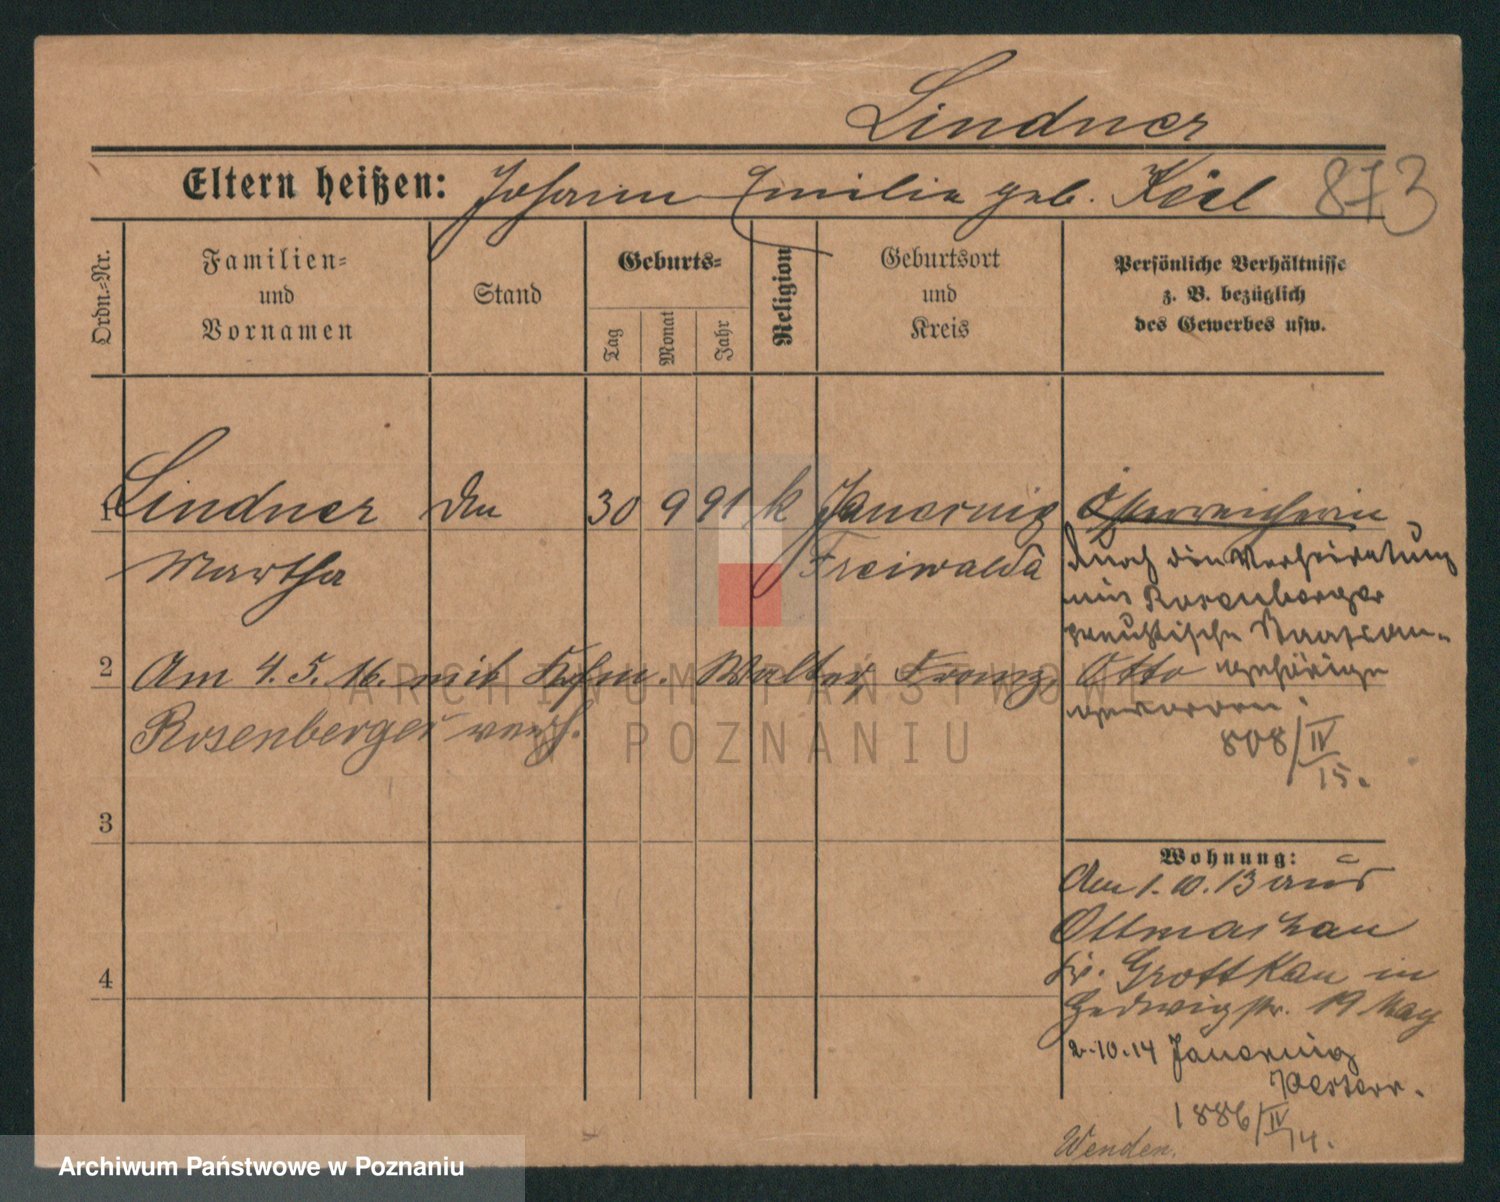 Lindner
Eltern heißen: Johann Emilie geb. Keil 873
Ordn.-Nr.
Familien-
und
Vornamen
Stand
Geburts-
Tag
Monat
Jahr
Religion
Geburtsort
und
Kreis
Persönliche Verhältnisse
z. B. bezüglich
des Gewerbes usw.
1 Lindner 30 9 91 k Jauernig Österreicherin
Martha Freiwalda durch die Verheiratung
mit Rosenberger
preußische Staatsan-
2 Am 4. 5. 16. mit Kfm. Walter Franz Otto gehörige
Rosenberger verh. geworden.
808/IV
15.
3
Wohnung:
Am 1. 10. 13 aus
Ottmachau
Kr. Grottkau in
4
Hedwigstr. 19
2.10.14 Jauernig
Oesterr.
1886/IV
14.
Wenden.
ARCHIWUM PAŃSTWOWE
W POZNANIU
Archiwum Państwowe w Poznaniu